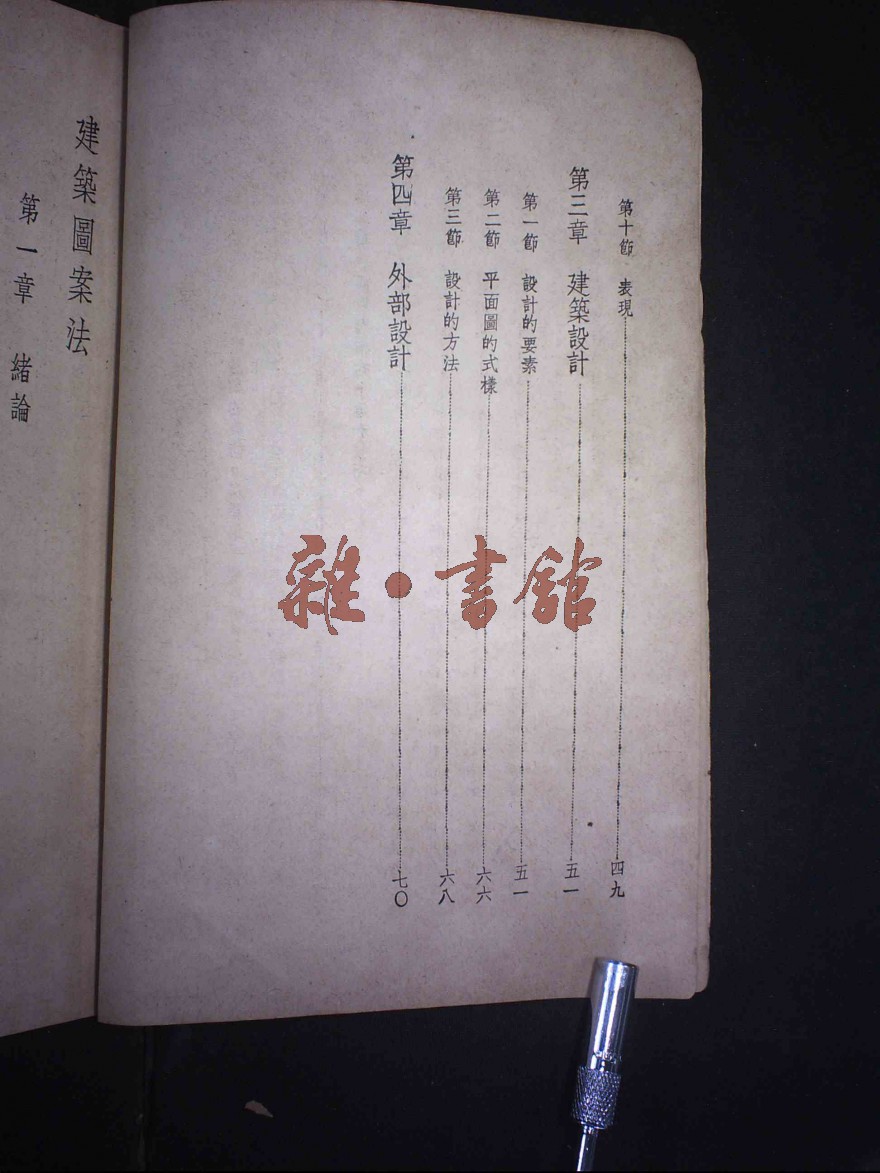 第十節 表現 四九
第三章 建築設計 五一
第一節 設計的要素 五一
第二節 平面圖的式樣 六六
第三節 設計的方法 六八
第四章 外部設計 七〇
建築圖案法
第一章 緒論
雜·書館